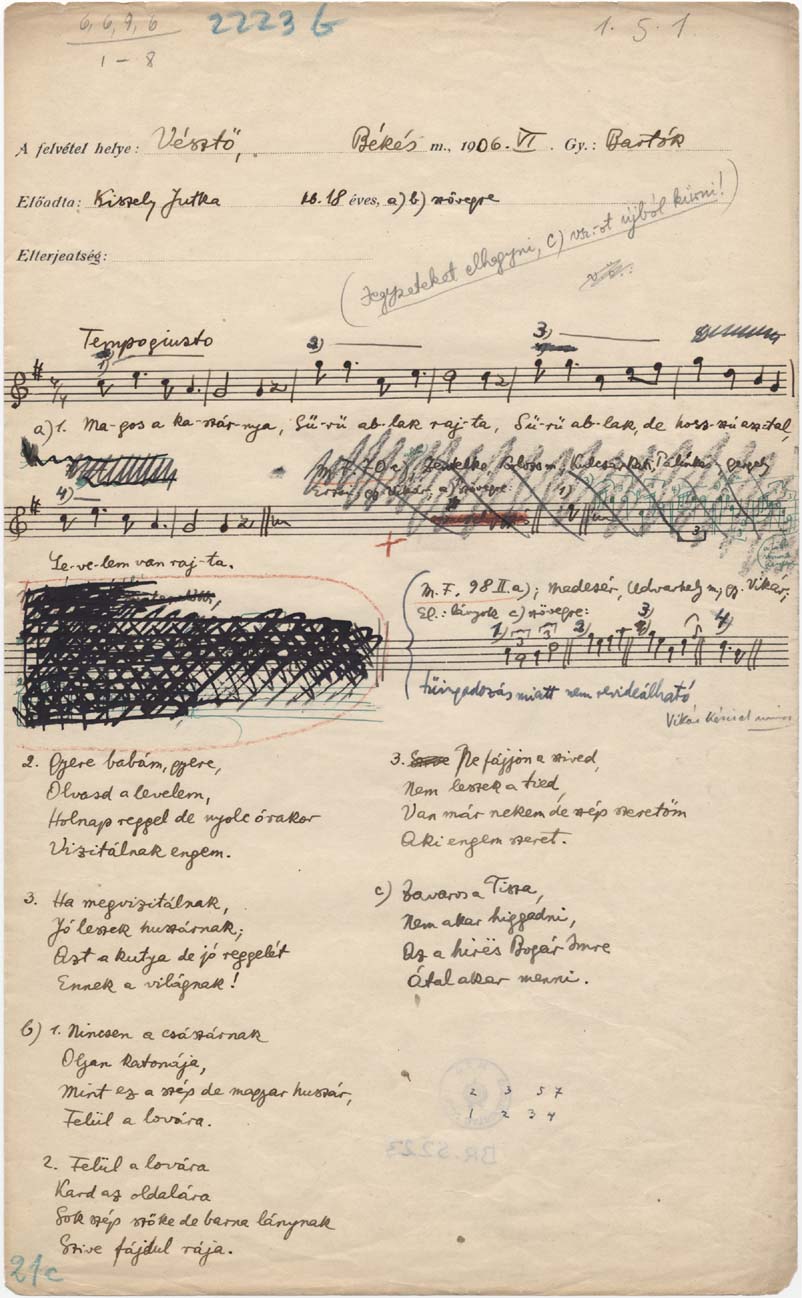 6, 6, 7, 6
2223 b
1. 5. 1.
1 – 8
A felvétel helye: Vésztő, Békés m., 1906. VI. Gy.: Bartók
Előadta: Kiszely Jutka 18 éves, a) b) szövegre
Elterjeatség:
(Jegyzeteket elhagyni, c) vsz-ot újból kiírni!)
Tempo giusto
1) 2) 3)
a) 1. Ma-gos a ka-szár-nya, Sü-rü ab-lak raj-ta, Sü-rü ab-lak, de hosz-szú asztal,
4)
Le-ve-lem van raj-ta.
M.F. 98 II. a); Medesér, Udvarhely m., gy. Vikár;
El.: lányok c) szövegre:
1) 3 3 2) 3) 4)
tüingadozás miatt nem revideálható
2. Gyere babám, gyere,
Olvasd a levelem,
Holnap reggel de nyolc órakor
Vizitálnak engem.
3. Ha megvizitálnak,
Jó leszek huszárnak;
Azt a kutya de jó reggelét
Ennek a világnak!
b) 1. Nincsen a császárnak
Oljan katonája,
Mint ez a szép de magyar huszár,
Felül a lovára.
2. Felül a lovára
Kard az oldalára
Sok szép szőke de barna lánynak
Szive fájdul rája.
3. Ne fájjon a szived,
Nem leszek a tied,
Van már nekem de szép szeretőm
Aki engem szeret.
c) Zavaros a Tisza,
Nem akar higgadni,
Az a hirës Bogár Imre
Átal akar menni.
2 3 5 7
1 2 3 4
21c